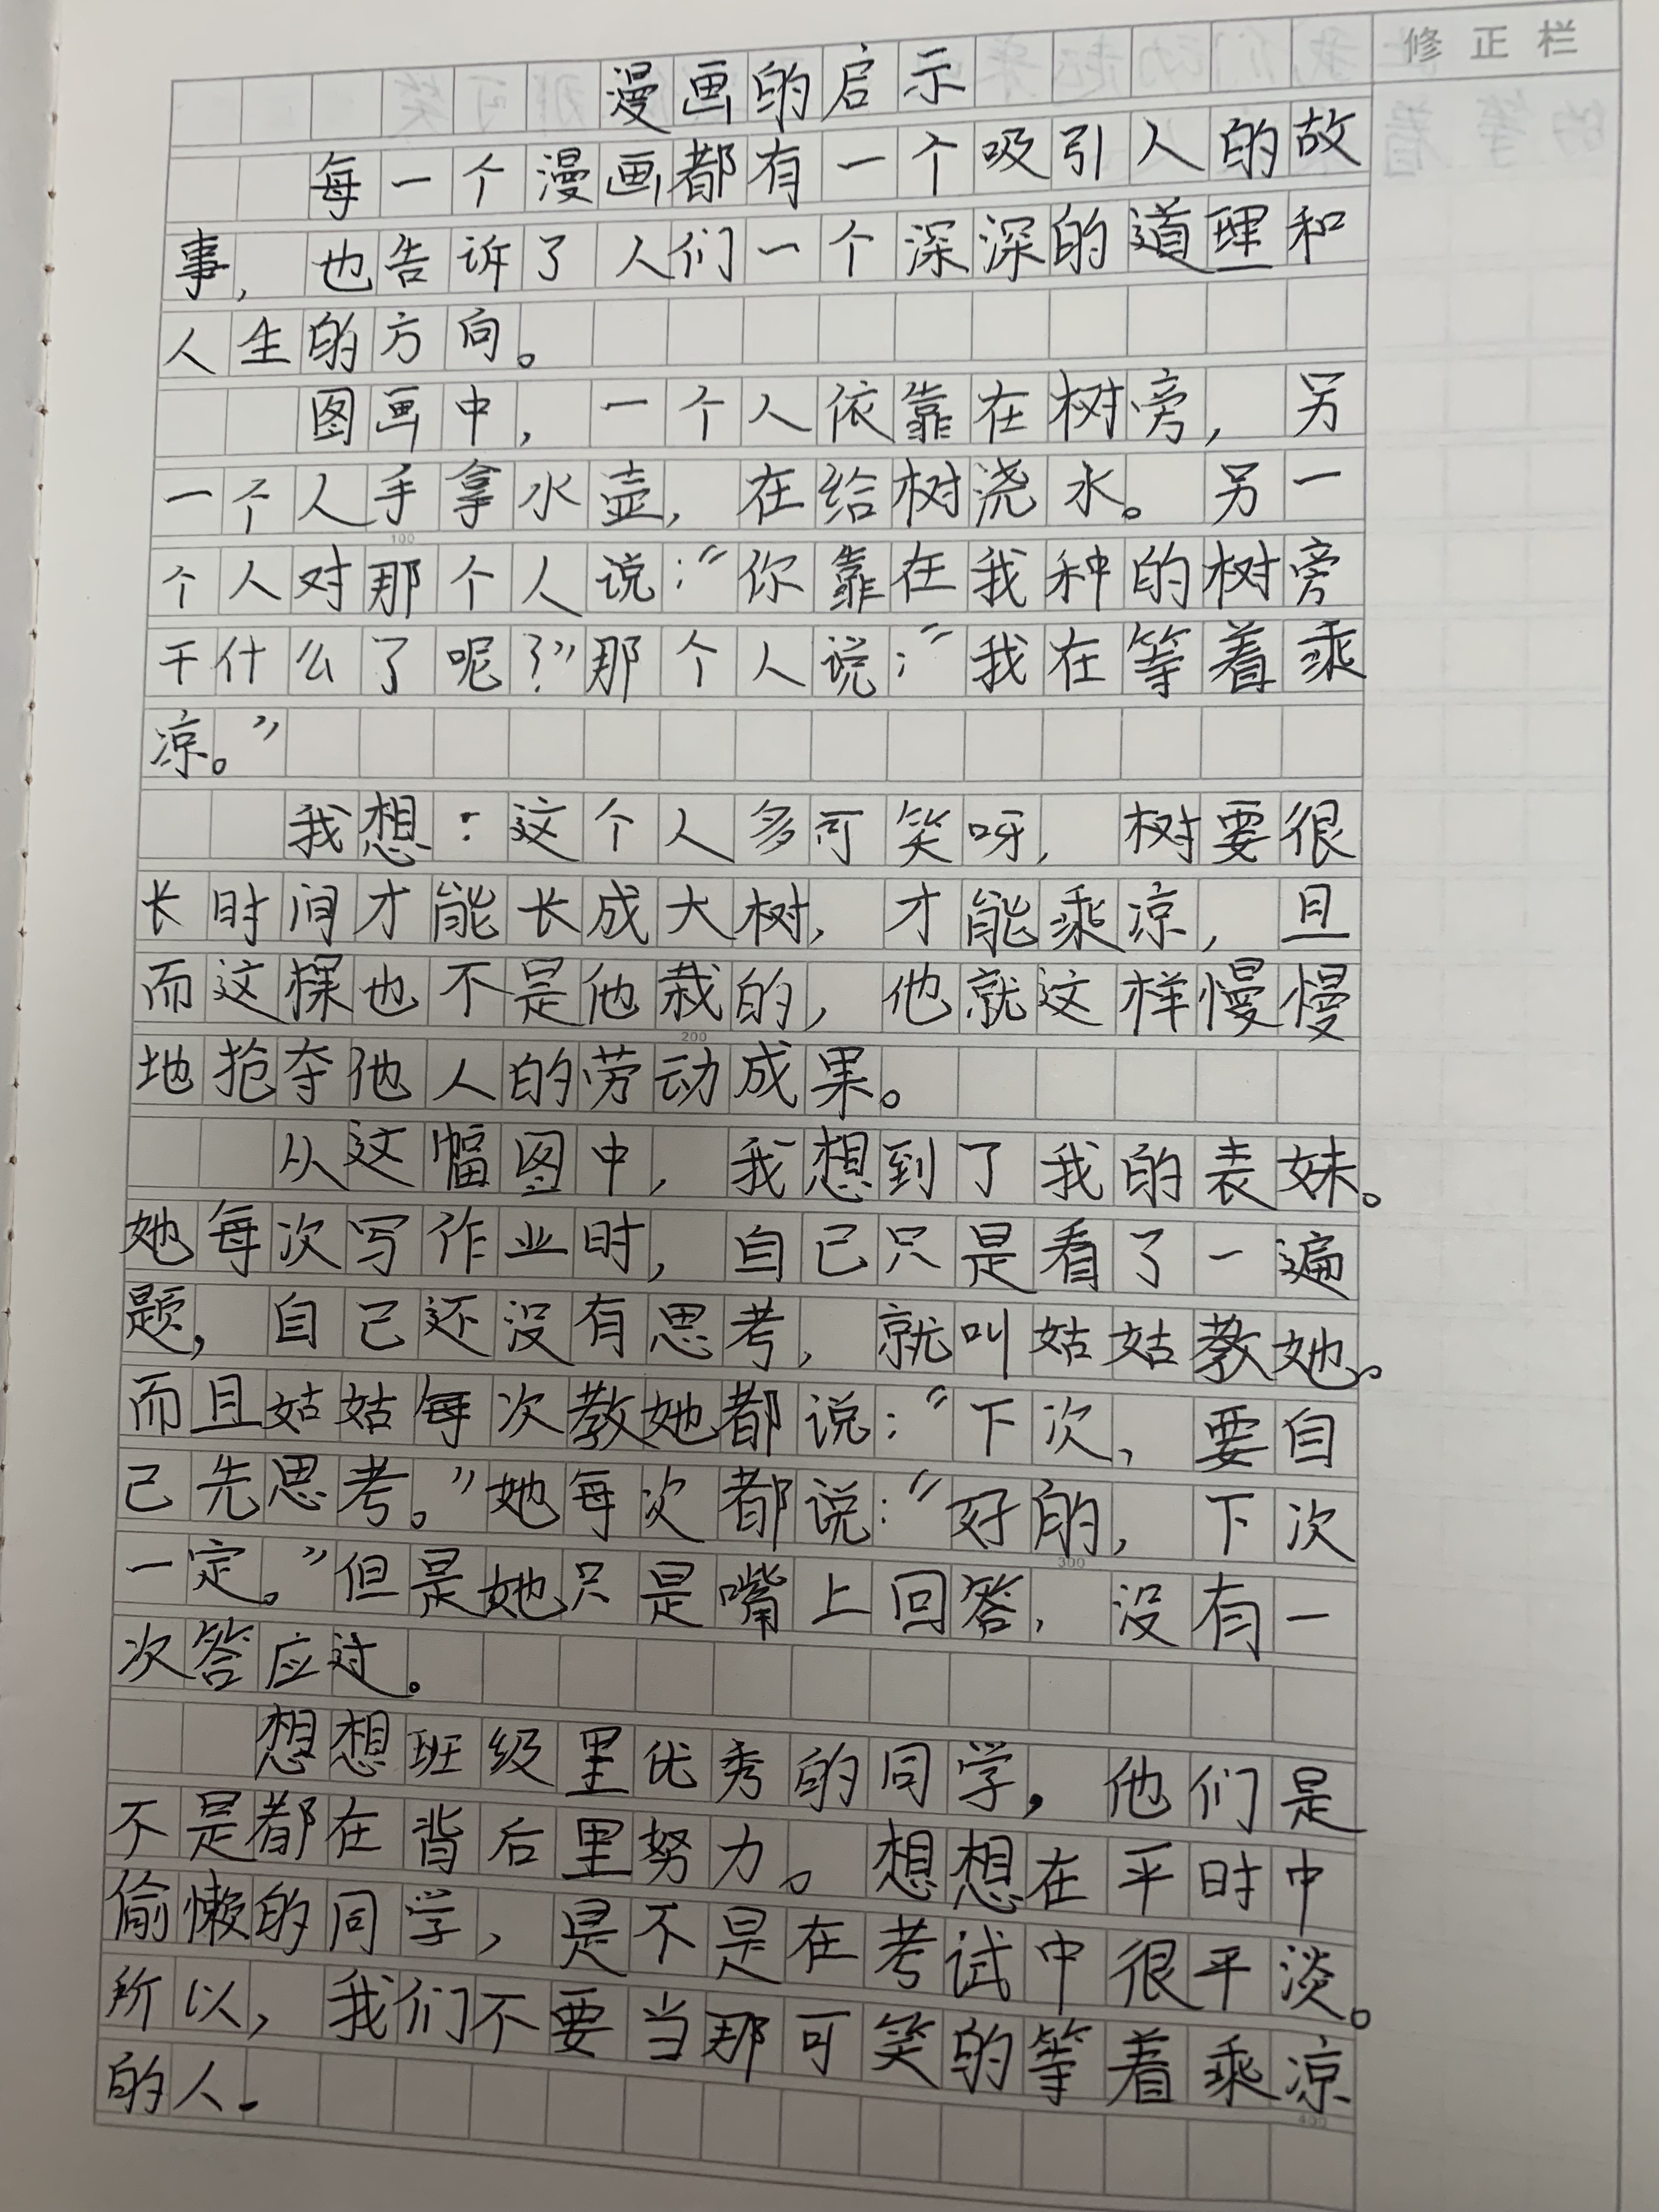 修正栏
漫画的启示
每一个漫画都有一个吸引人的故
事,也告诉了人们一个深深的道理和
人生的方向。
图画中,一个人依靠在树旁,另
一个人手拿水壶,在给树浇水。另一
个人对那个人说:“你靠在我种的树旁
干什么了呢?”那个人说:“我在等着乘
凉。”
我想:这个人多可笑呀,树要很
长时间才能长成大树,才能乘凉,且
而这棵也不是他栽的,他就这样慢慢
地抢夺他人的劳动成果。
从这幅图中,我想到了我的表妹。
她每次写作业时,自己只是看了一遍
题,自己还没有思考,就叫姑姑教她。
而且姑姑每次教她都说:“下次,要自
己先思考。”她每次都说:“好的,下次
一定。”但是她只是嘴上回答,没有一
次答应过。
想想班级里优秀的同学,他们是
不是都在背后里努力。想想在平时中
偷懒的同学,是不是在考试中很平淡。
所以,我们不要当那可笑的等着乘凉
的人.
100
200
300
400